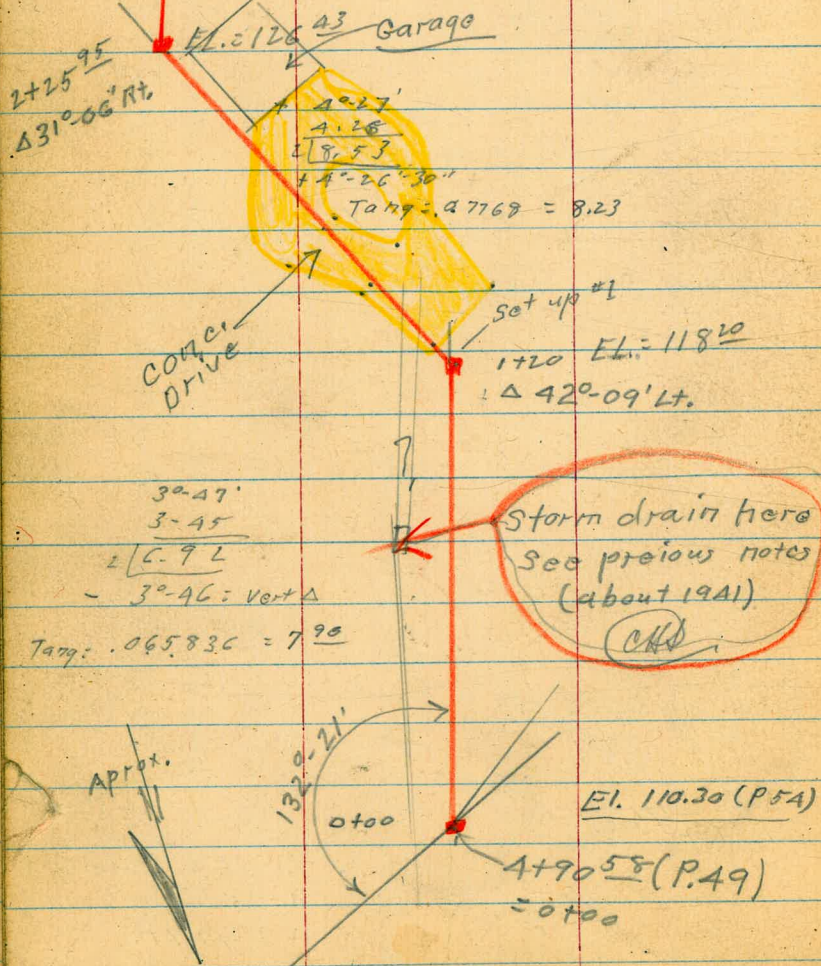 EL. = 126 43
Garage
2+25 95
Δ 31°-06' Rt.
+ 4°-27'
4.26
2 8.53
+ 4°-26'-30"
Tang = .07768 = 8.23
Conc.
Drive
Set up #1
1+20 EL. = 118 20
Δ 42°-09' Lt.
3°-47'
3-45
2 6.92
- 3°-46 = Vert Δ
Tang = .065836 = 7 90
Storm drain here
See preious notes
(about 1941)
CHS
132°-21'
Aprox.
0+00
El. 110.30 (P54)
4+90 58 (P.49)
= 0+00